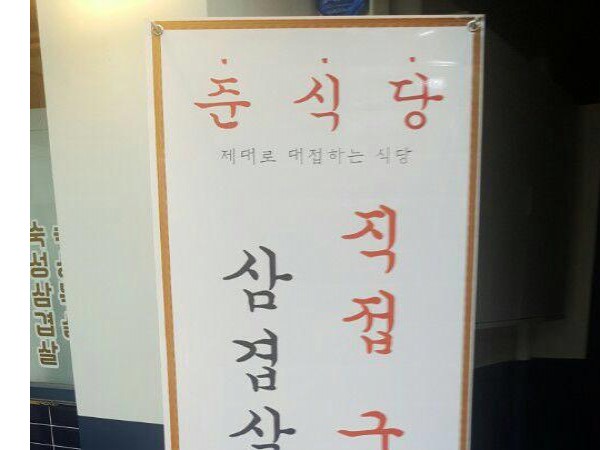 준식당
제대로 대접하는 식당
직접 구
삼겹살
숙성삼겹살